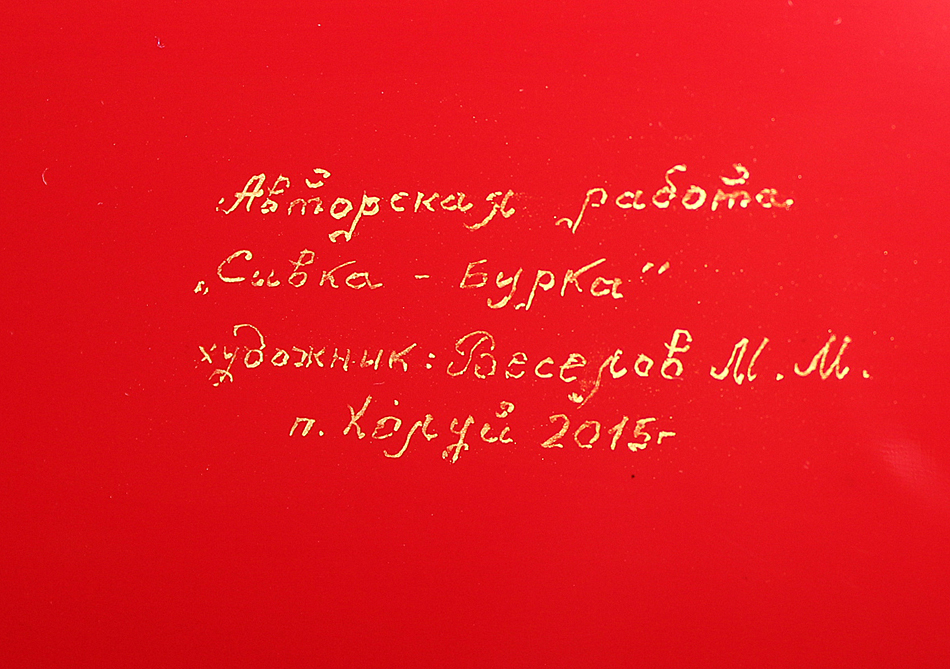 Авторская работа
„Сивка - Бурка"
художник: Веселов М. М.
п. Холуй 2015г